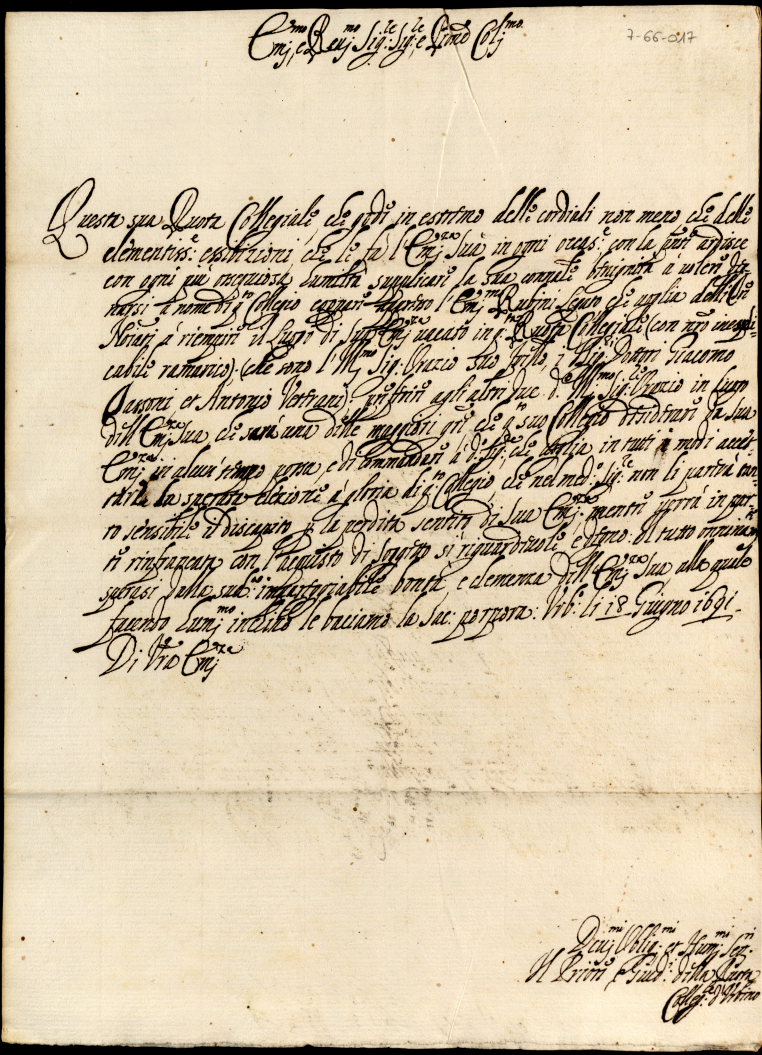 7-66-017
Em.mo e Rev.mo Sig.re Sig.re e Pron̄e Col.mo
Questa sua Ruota Collegiale, che gode in estremo delle cordiali non meno che delle
clementiss.e che le fà l'Em.za Sua in ogni occas.e con la pn̄te ardisce
con ogni più ossequiosa humiltà supplicare la sua connat.e benignità à volere
à nome di q.to Collegio l'Em.mo Rubini che voglia delli
à riempire il luogo di Sua Em.za vacato in q.ta Ruota Collegiale (con nr̄o inespli-
cabile ramarico) (che sono l'Ill.mo Sig. Orazio suo frello, i Sig.ri Dottori Giacomo
et Antonio Veterani) preferire agli altri due d.o Ill.mo Sig. Orazio in luogo
dell'Em.za Sua, che sarà una delle maggiori che q.to suo Collegio desiderare da Sua
Em.za in alcun tempo possa, e di commandare à d.o Sig.re che voglia in tutti i modi accet-
tare la elezione à gloria di q.to Collegio, che nel med.o Sig.re non li partirà
sensibile il discapito p la perdita sentita di Sua Em.za mentre verrà in par-
te rinfrancata con l'acquisto di soggetto sì riguardevole, e degno. Il tutto
sperasi dalla sud.a impareggiabile bontà, e clemenza dell'Em.za Sua alla quale
facendo hum.mo inchino le baciamo la Sac: porpora: Urb: li 18 Giugno 1691
Di Vr̄a Em.za
Dev.mi Oblig.mi et Hum.mi Ser.ri
Il Priore, e Giud.i della Ruota
Colleg.le d'Urbino